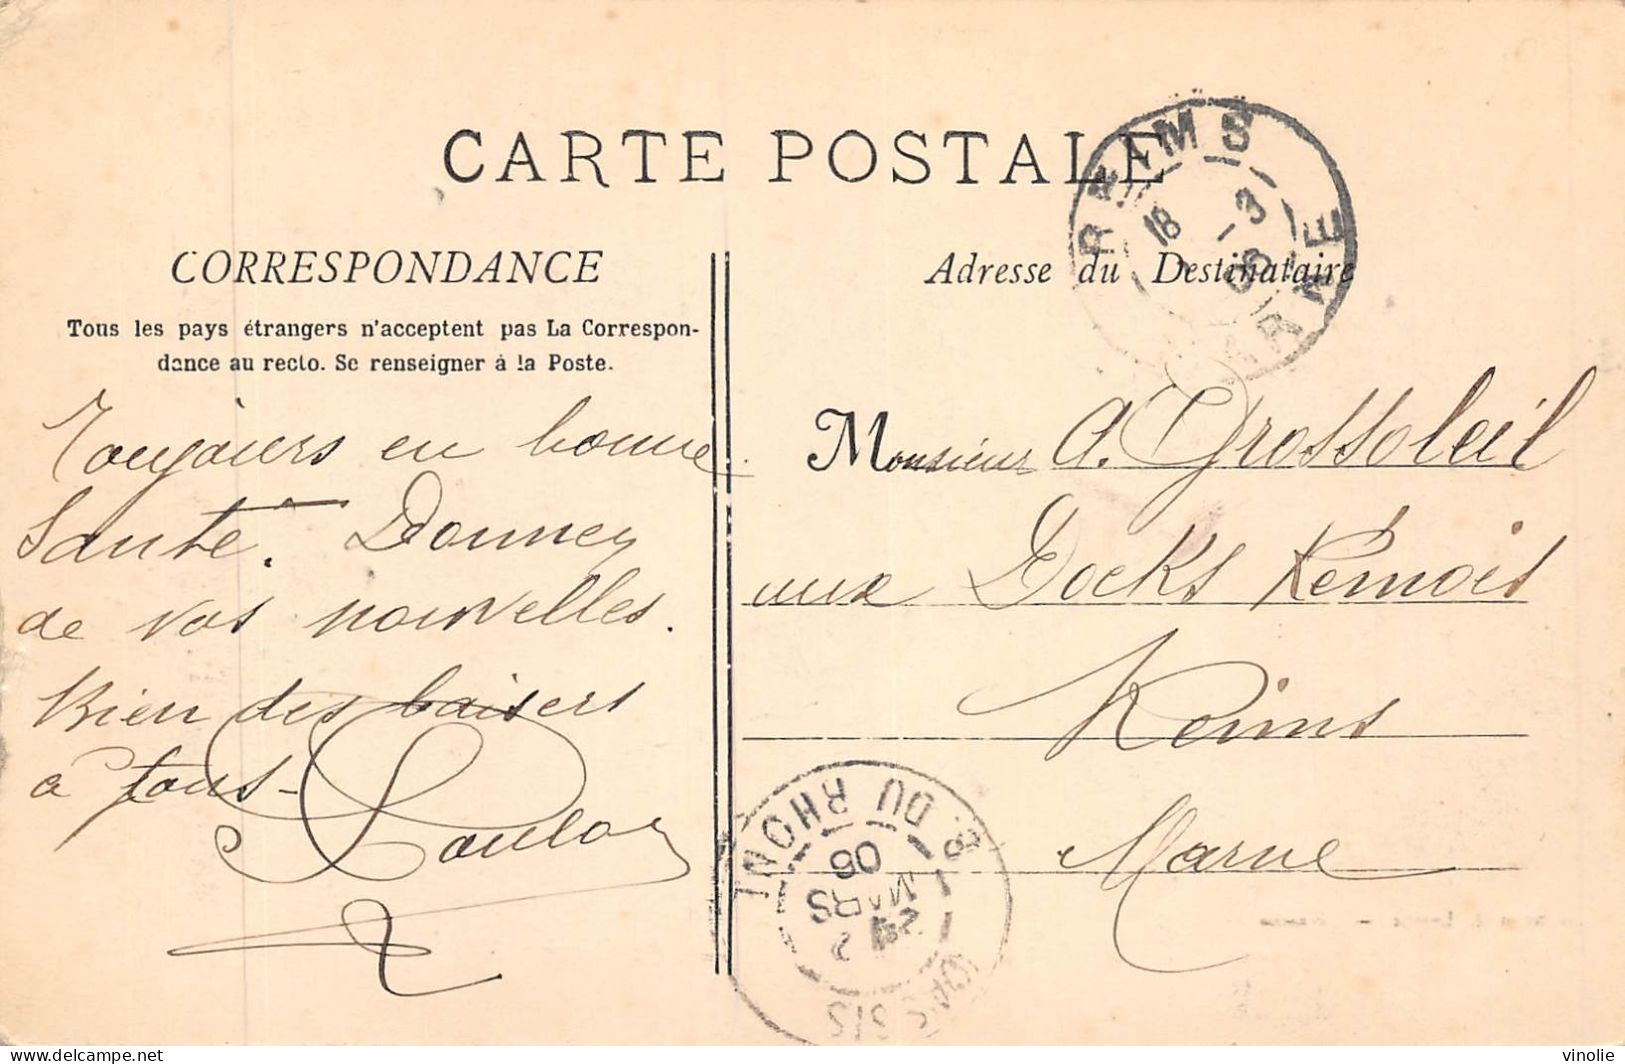 CARTE POSTALE
REIMS
18 -3
06
MARNE
CORRESPONDANCE
Tous les pays étrangers n'acceptent pas La Correspon-
dance au recto. Se renseigner à la Poste.
Toujours en bonne
Santé. Donnez
de vos nouvelles.
Bien des baisers
à tous -
Adresse du Destinataire
Monsieur A. Grossoleil
aux Docks Remois
Reims
Marne
B. DU RHONE
2
MARS
06
delcampe.net
vinolie